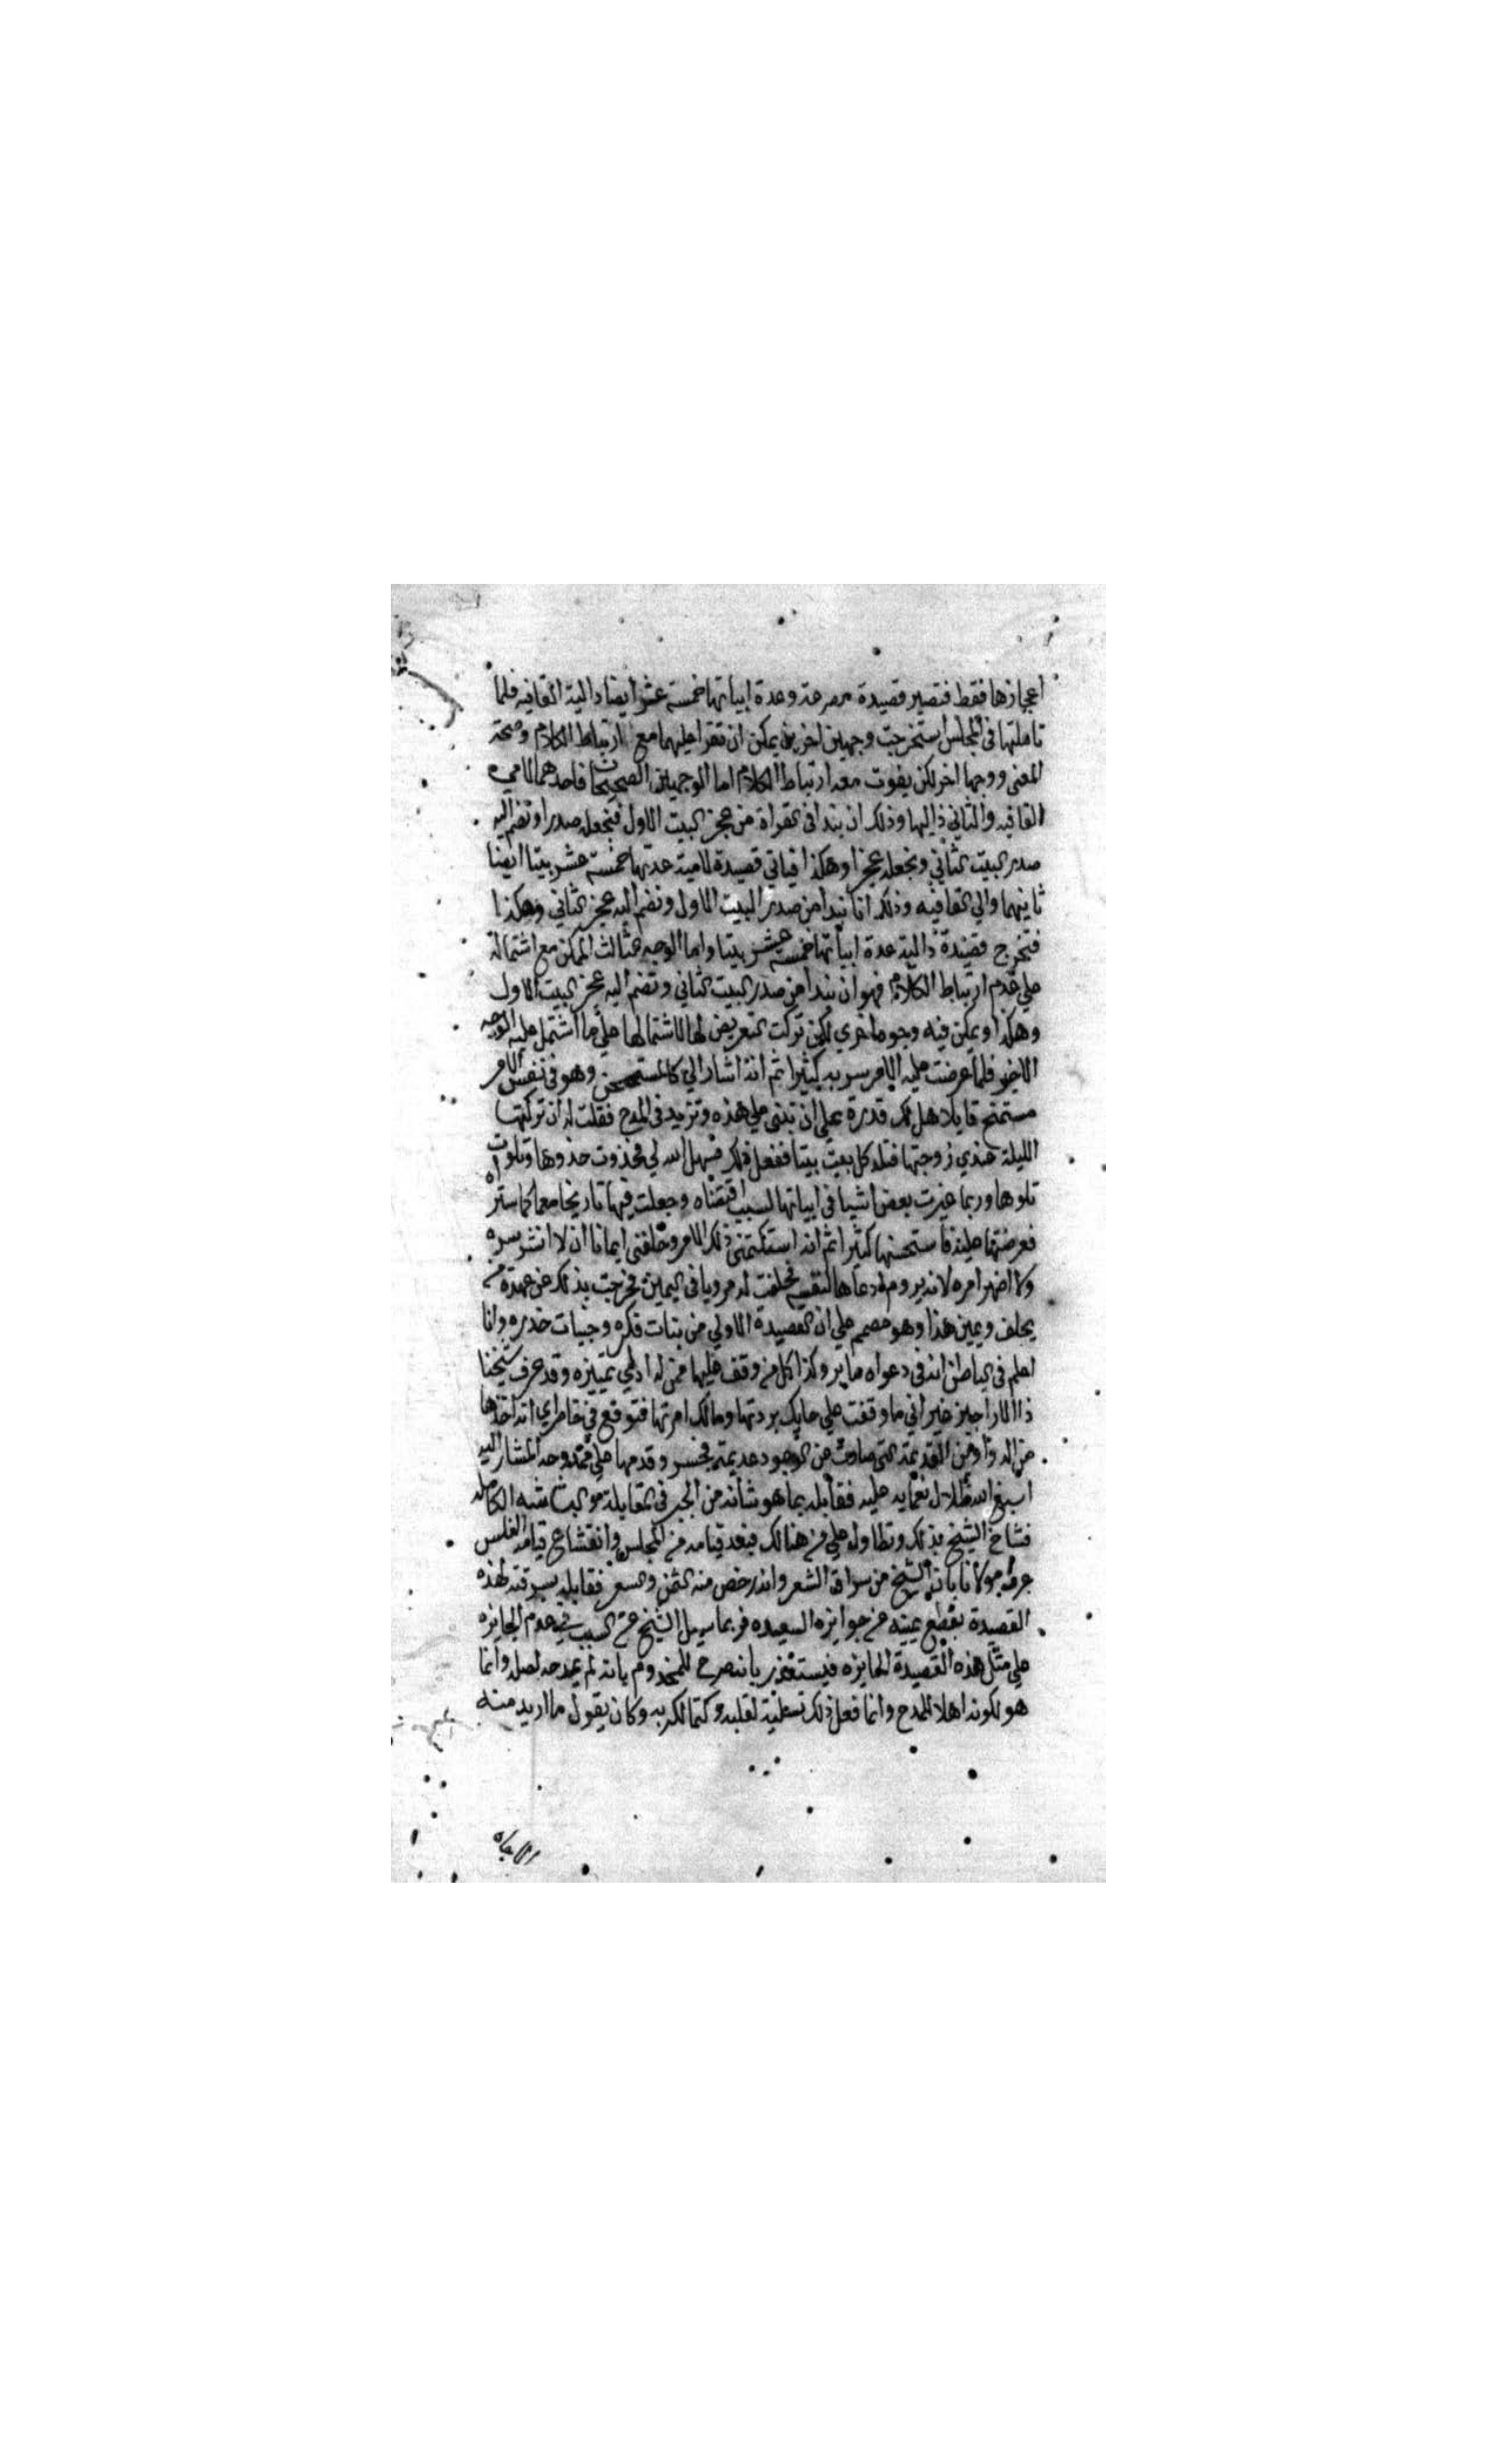 اعجازها فقط فتصير قصيدة مصرعة وعدة ابياتها خمسة عشر ايضا دالية القافيه فلما
تاملتها في المجلس استخرجت وجهين اخرين يمكن ان تقرا عليهما مع ارتباط الكلام وصحة
المعنى ووجها اخر لكن يفوت معه ارتباط الكلام اما الوجهين الصحيحان فاحدهما لامي
القافيه والثاني داليها وذلك ان نبدا في القراة من عجز البيت الاول فنجعله صدرا ونضم اليه
صدر البيت الثاني ونجعله عجزا وهكذا فياتي قصيدة لامية عدتها خمسة عشر بيتا ايضا
ثانيهما دالي القافيه وذلك انا نبدا من صدر البيت الاول ونضم اليه عجز الثاني وهكذا
فتخرج قصيدة دالية عدة ابياتها خمسة عشر بيتا واما الوجه الثالث الممكن مع اشتماله
علي عدم ارتباط الكلام فهو ان نبدا من صدر البيت الثاني ونضم اليه عجز البيت الاول
وهكذا ويمكن فيه وجوه اخري لكن تركت التعريض لها لاشتمالها علي ما اشتمل عليه الوجه
الاخير فلما عرضت عليه الامر سر به كثيرا ثم انه اشار الي كالمستمحن وهو في نفس الامر
مستمنح قايلا هل لك قدرة علي ان تبني علي هذه وتزيد في المدح فقلت له ان تركتها
الليلة عندي زوجتها فتلد كل بيت بيتا ففعل ذلك فسهل الله لي فحذوت حذوها وتلوت
تلوها وربما غيرت بعض اشيا في ابياتها لسبب اقتضاه وجعلت فيها تاريخا معما كما ستراه
فعرضتها عليه فاستحسنها كثيرا ثم انه استكتمني ذلك الامر وحلفني ايمانا ان لا انشر سره
ولا اظهر امره لانه يروم ادعاها لنفسه فحلفت له مرويا في اليمين فخرجت بذلك عن عهدة من
يحلف ويمين هذا وهو مصمم علي ان القصيدة الاولي من بنات فكره وخبيات خدره وانا
اعلم في الباطن انه في دعواه ماير وكذا كل من وقف عليها ممن له ادني تمييز وقد عرف شيخنا
ذا الاراجيز غير اني ما وقفت علي حايك بردتها ومالك امرتها فتوقع في خاطري انه اخذها
من الدواوين القديمة التي صارت من الوجود عديمة فجسر وقدمها علي ممدوحه المشار اليه
اسبغ الله ظلال نعمايه عليه فقابله بما هو شانه من الجبر في المقابلة مو البشاشه الكامله
فشاخ الشيخ بذلك وتطاول علي من هنالك فبعد قيامه من المجلس وانقشاع قيامه الغلس
عرف مولانا بانه الشيخ من سراق الشعر وانه رخص منه الثمن والسعر فقابله بسرقته لهذه
القصيدة بقطع عينه عن جوايزه السعيده فربما سيل الشيخ عن السبب في عدم الجايزه
علي مثل هذه القصيدة الحايزه فيستعذر بانه صرح للمخدوم بانه لم يمدحه لصله وانما
هو لكونه اهلا للمدح وانما فعل ذلك تسلية لقلبه وكتما لكربه وكان يقول ما اريد منه